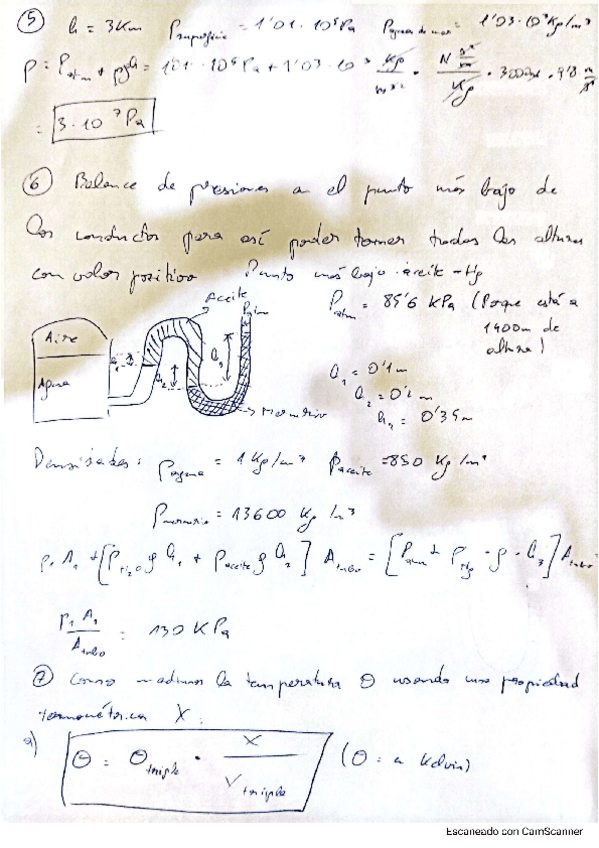 5 h = 3Km P superficie = 1'01 · 10⁵Pa ρ agua de mar = 1'03 · 10³ Kg/m³
P = P atm + ρgh = 101 · 10⁵ Pa + 1'03 · 10³ · 3000 · 9'8
= 3 · 10⁷ Pa
6 Balance de presiones en el punto más bajo de
los conductos para así poder tomar todas las alturas
con valor positivo Punto más bajo aceite - Hg
Aceite
P atm
P atm = 85'6 KPa (Porque está a
1400m de
altura)
Aire
Agua
h₁
h₂
h₃
Mercurio
h₁ = 0'1m
h₂ = 0'2m
= 0'35m
Densidades: ρ agua = 1 Kg/m³ ρ aceite = 850 Kg/m³
ρ mercurio = 13600 Kg/m³
P · A₁ + [ρ H₂O g h₁ + ρ aceite g h₂] A tubo = [P atm + ρ Hg · g · h₃] A tubo
P₁ A₁ / A tubo = 130 KPa
7 Como medimos la temperatura Θ usando una propiedad
termométrica X:
a) Θ = Θ triple · X / X triple (Θ = en Kelvin)
Escaneado con CamScanner